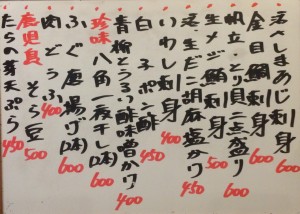 活〆しまあじ刺身 600
金目鯛刺身 600
帆立・とり貝二点盛り 600
生メジ鮪刺身 500
活・生だこ胡麻塩がけ 600
いわし刺身 450
白子ポン酢 400
青柳とうるい酢味噌がけ 400
珍味 八角一夜干し(2本) 600
ふぐ唐揚げ(2本) 600
肉どうふ 400
鹿児島 そら豆 500
たらの芽天ぷら 450